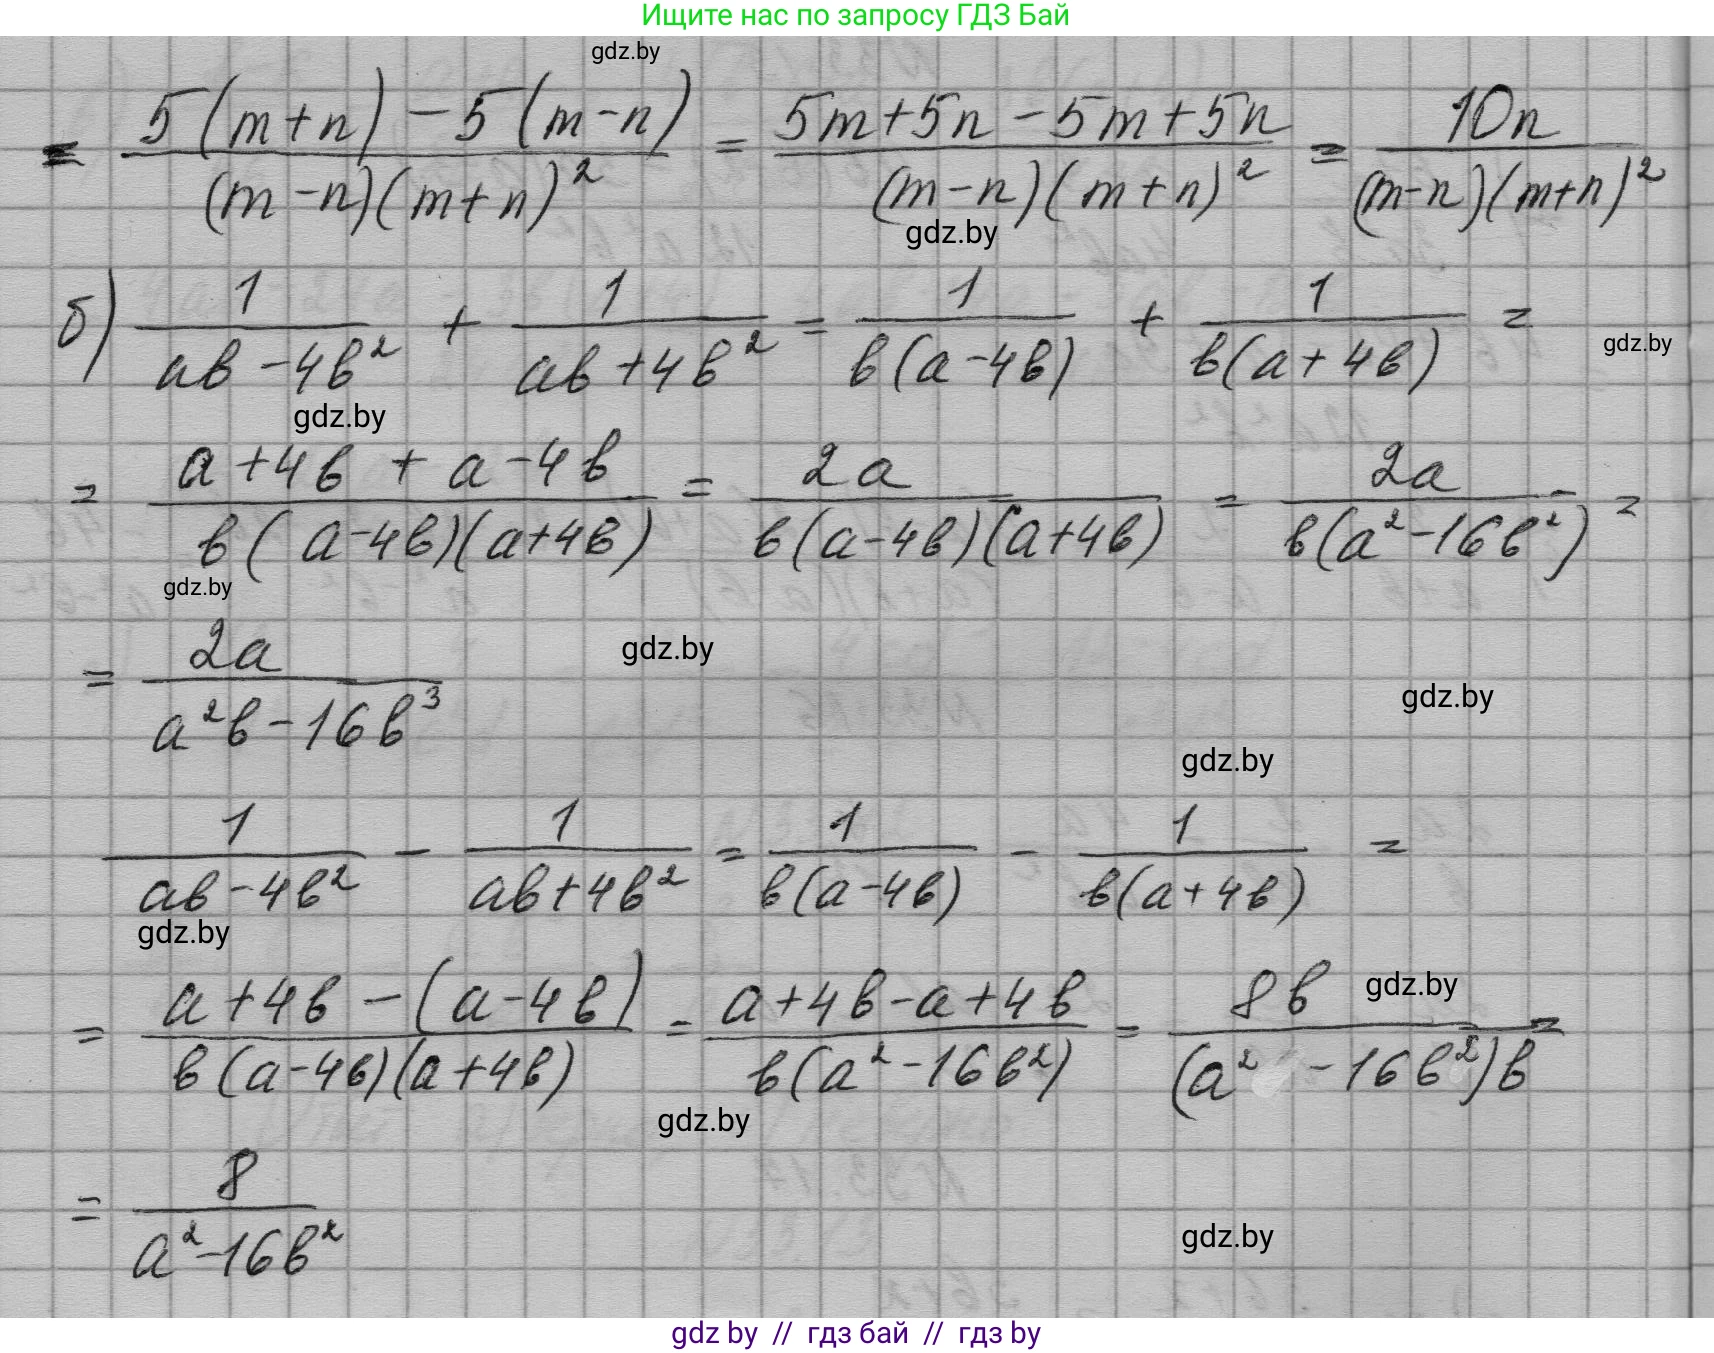 Ищите нас по запросу ГДЗ Бай
gdz.by
= \frac{5(m+n) - 5(m-n)}{(m-n)(m+n)^2} = \frac{5m+5n-5m+5n}{(m-n)(m+n)^2} = \frac{10n}{(m-n)(m+n)^2}
gdz.by
б) \frac{1}{ab-4b^2} + \frac{1}{ab+4b^2} = \frac{1}{b(a-4b)} + \frac{1}{b(a+4b)} =
gdz.by
gdz.by
= \frac{a+4b+a-4b}{b(a-4b)(a+4b)} = \frac{2a}{b(a-4b)(a+4b)} = \frac{2a}{b(a^2-16b^2)} =
gdz.by
= \frac{2a}{a^2b-16b^3}
gdz.by
gdz.by
gdz.by
\frac{1}{ab-4b^2} - \frac{1}{ab+4b^2} = \frac{1}{b(a-4b)} - \frac{1}{b(a+4b)} =
gdz.by
= \frac{a+4b-(a-4b)}{b(a-4b)(a+4b)} = \frac{a+4b-a+4b}{b(a^2-16b^2)} = \frac{8b}{(a^2-16b^2)b} =
gdz.by
gdz.by
= \frac{8}{a^2-16b^2}
gdz.by
gdz by // гдз бай // гдз by